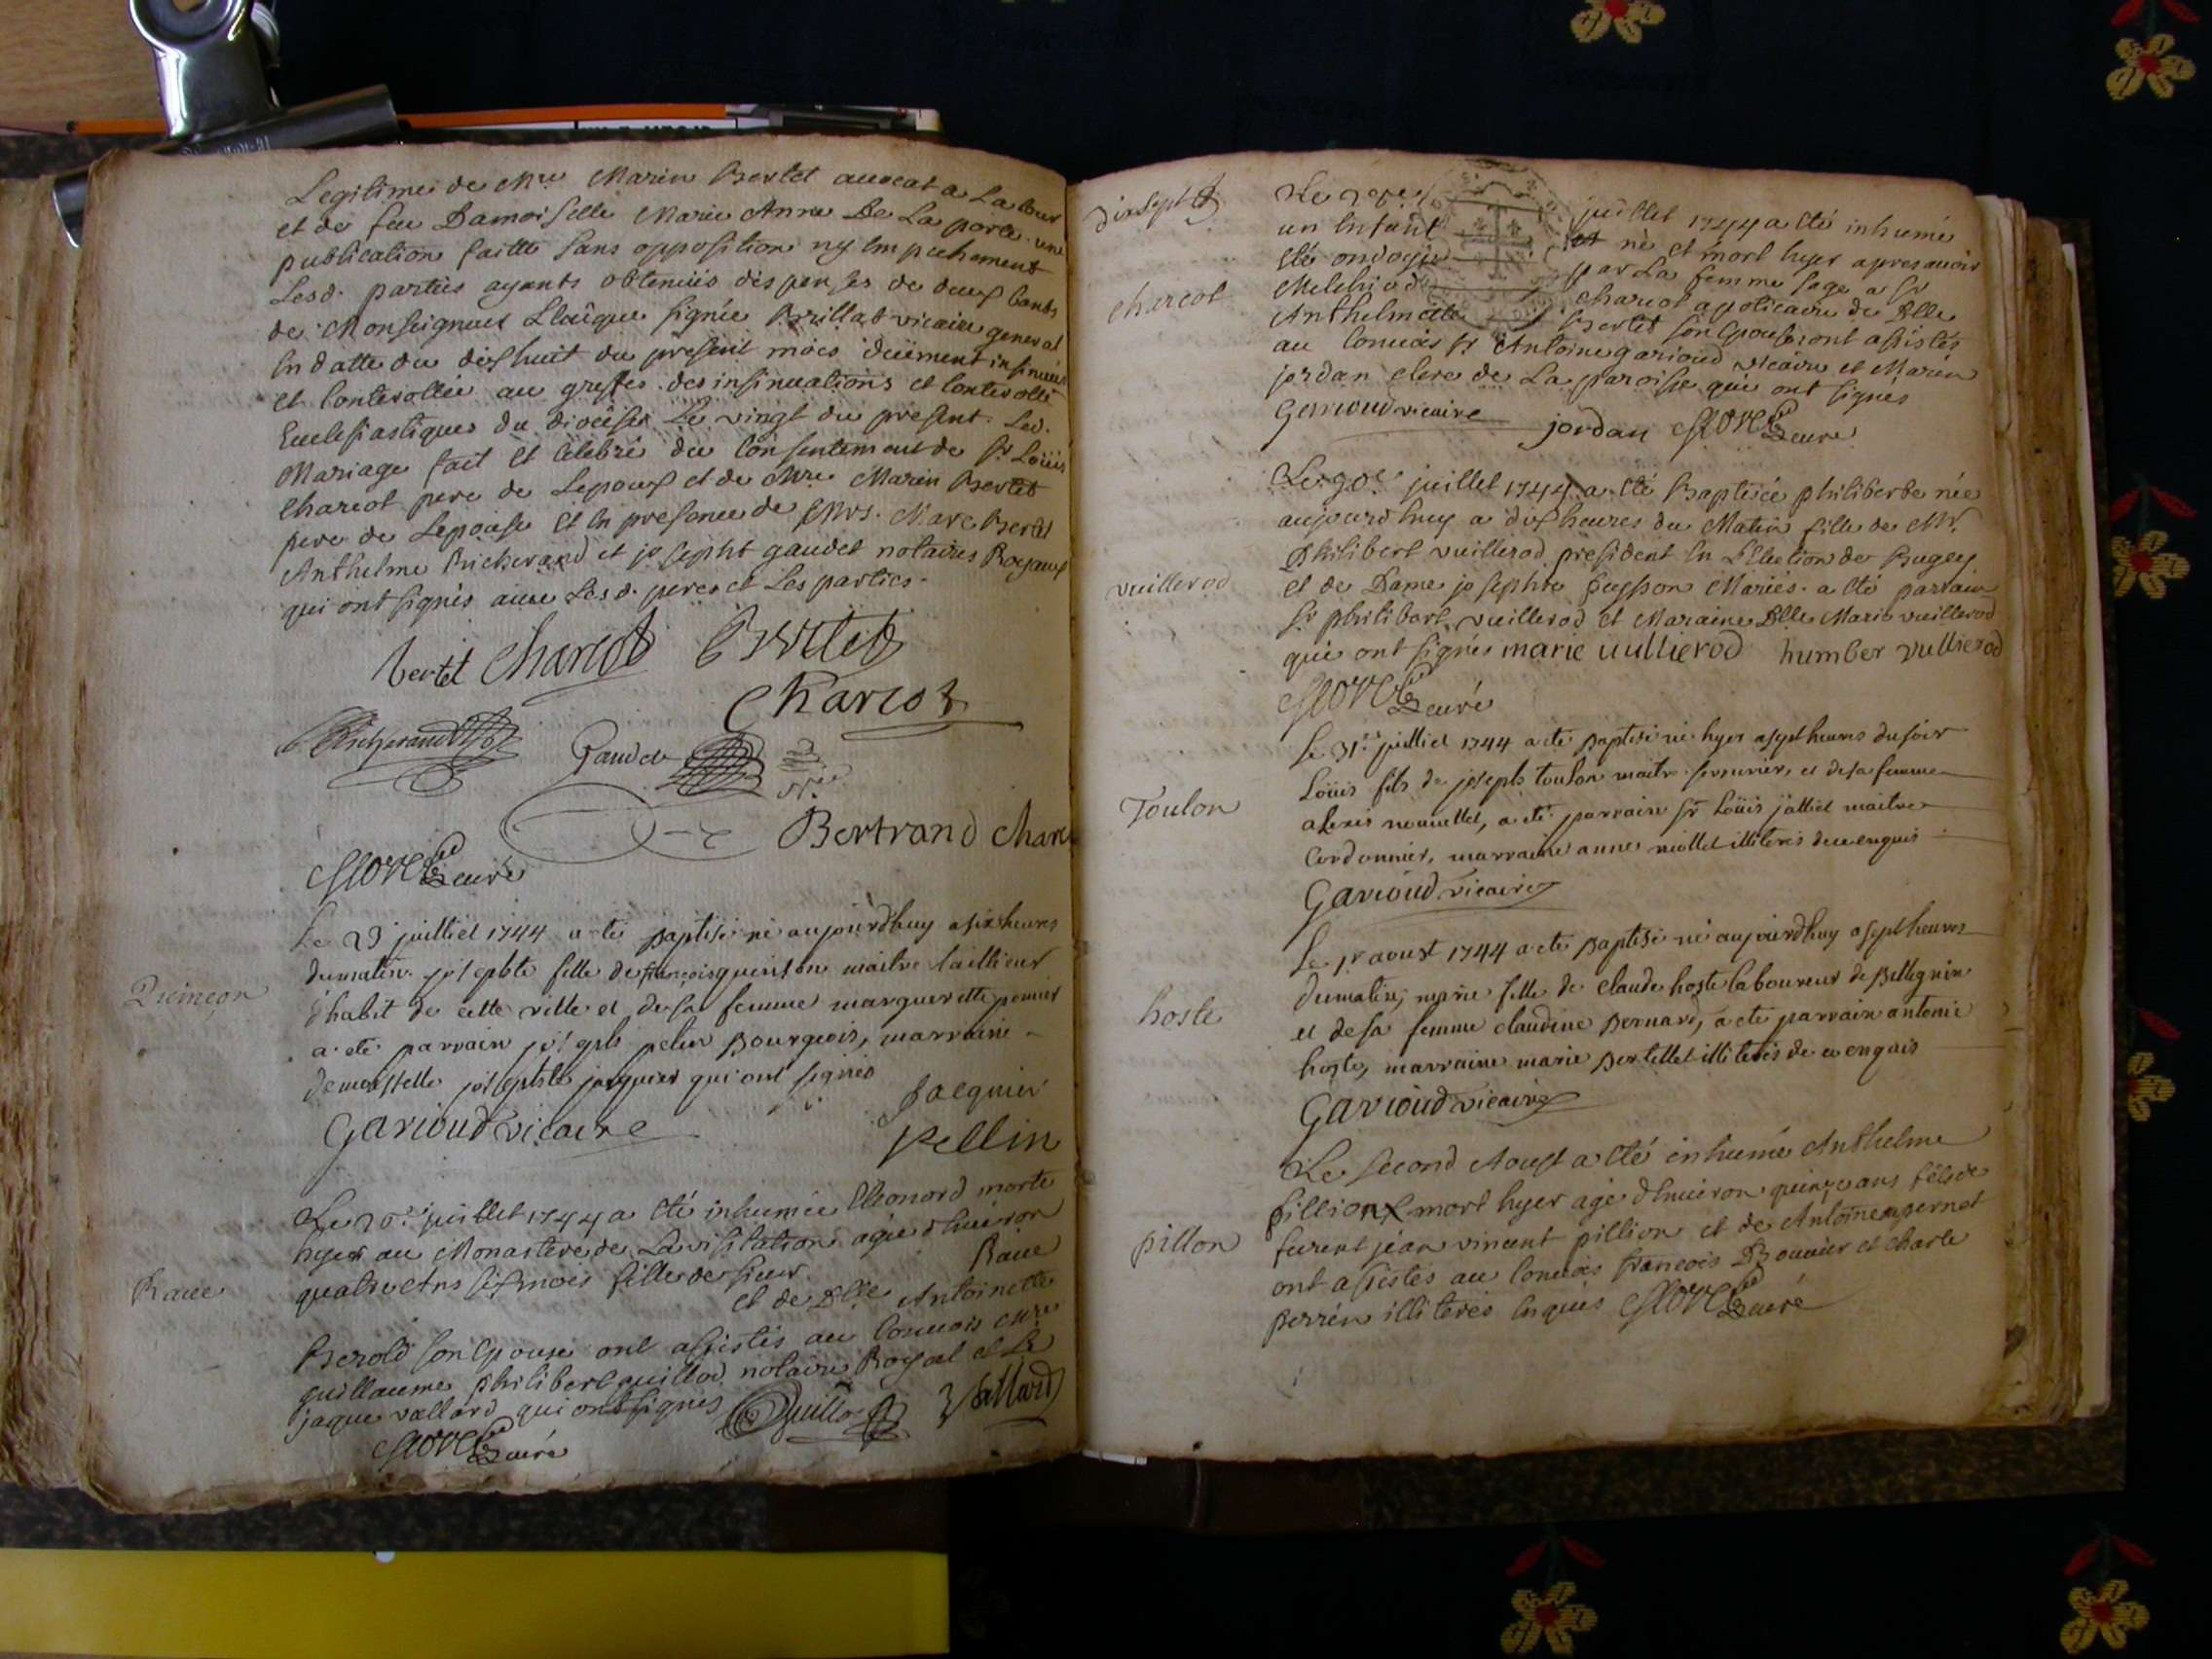 Legitime de Mre Marin Bertet auocat a La Cour
et de feu Damoiselle Marie Anne De La porte une
publication faitte sans opposition ny Empechement
Lesd. parties ayants obtenües dispenses de deux bants
de Monseigneur L'Evêque signée Brillat vicaire general
En datte du dixhuit du present mois düement insinuée
et Controllée au greffes des insinuations et Controlle
Ecclesiastiques du diocèse Le vingt du present. Led.
Mariage fait Et Célébré du Consentement de Sr Loüis
Charcot pere de Lepoux et de Mre Marin Bertet
pere de Lepouse Et En presence de Mrs. Marc Bertet
Anthelme Richerand et josepht gaudet notaires Royaux
qui ont signés auec Lesd. peres et Les parties.
Bertet Charcot Bertet
Charcot
Richerand Gaudet
Bertrand Charc
curé
Le 23 juilliet 1744 a été baptisé né aujourdhuy a six heures
Quinçon
du matin josephte fille de françois quinson maitre taillieur
d'habit de cette ville et de sa femme margueritte
a été parrain joseph pelin Bourgeois, marraine
demoiselle josephte jacquier qui ont signés
Jacquier
Garioud vicaire
Pellin
Le juillet 1744 a Eté inhumée Eleonord morte
hyer au Monastere de La visitation agée d'Enuiron
quatre Ans six mois fille de sieur Raue
Raue
et de Dlle Antoinette
Berold son Epouse ont assistés au Conuois Mre
guillaume philibert quillod notaire Royal et Sr
jaque vallard qui ont signés Quillod Vallard
curé
dixsept
Le juillet 1744 a Eté inhumé
un Enfant né et mort hyer apres auoir
Eté ondoyé par La femme sage a Sr
charcot
Melchiod Charcot apoticaire de Dlle
Anthelmette Bertet son Epouse ont assistés
au Conuois Sr Antoine garioud vicaire et Marin
jordan clerc de La paroisse qui ont signés
Garioud vicaire jordan curé
Le 30e juillet 1744 a Eté Baptisée philiberte née
aujourdhuy a dix heures du Matin fille de Mr.
Philibert vuillerod president En L'Election de Bugey
vuillerod
et de Dame josephte Mariés. a Eté parrain
Sr philibert vuillerod et Maraine Dlle Marie vuillerod
qui ont signés marie uullierod humber vullierod
curé
Le 31e juilliet 1744 a été baptisé né hyer a sept heures du soir
Toulon
Loüis fils de joseph toulon maitre serrurier, et de sa femme
a été parrain Sr Loüis jalliet maitre
Cordonnier, marraine anne illiterés de ce enquis
Garioud vicaire
Le 1r aoust 1744 a été baptisé né aujourdhuy a sept heures
hoste
du matin, marie fille de claude hoste laboureur de Billignin
et de sa femme claudine Bernard, a été parrain antoine
hoste, marraine marie Bertellet illiterés de ce enquis
Garioud vicaire
Le second Aoust a Eté inhumé Anthelme
pillion mort hyer agé d'Enuiron quinze ans fils de
pillon
furent jean vincent pillion et de Antoinea pernet
ont assistés au Conuois francois Bouuier et charle
perrin illiterés Enquis curé